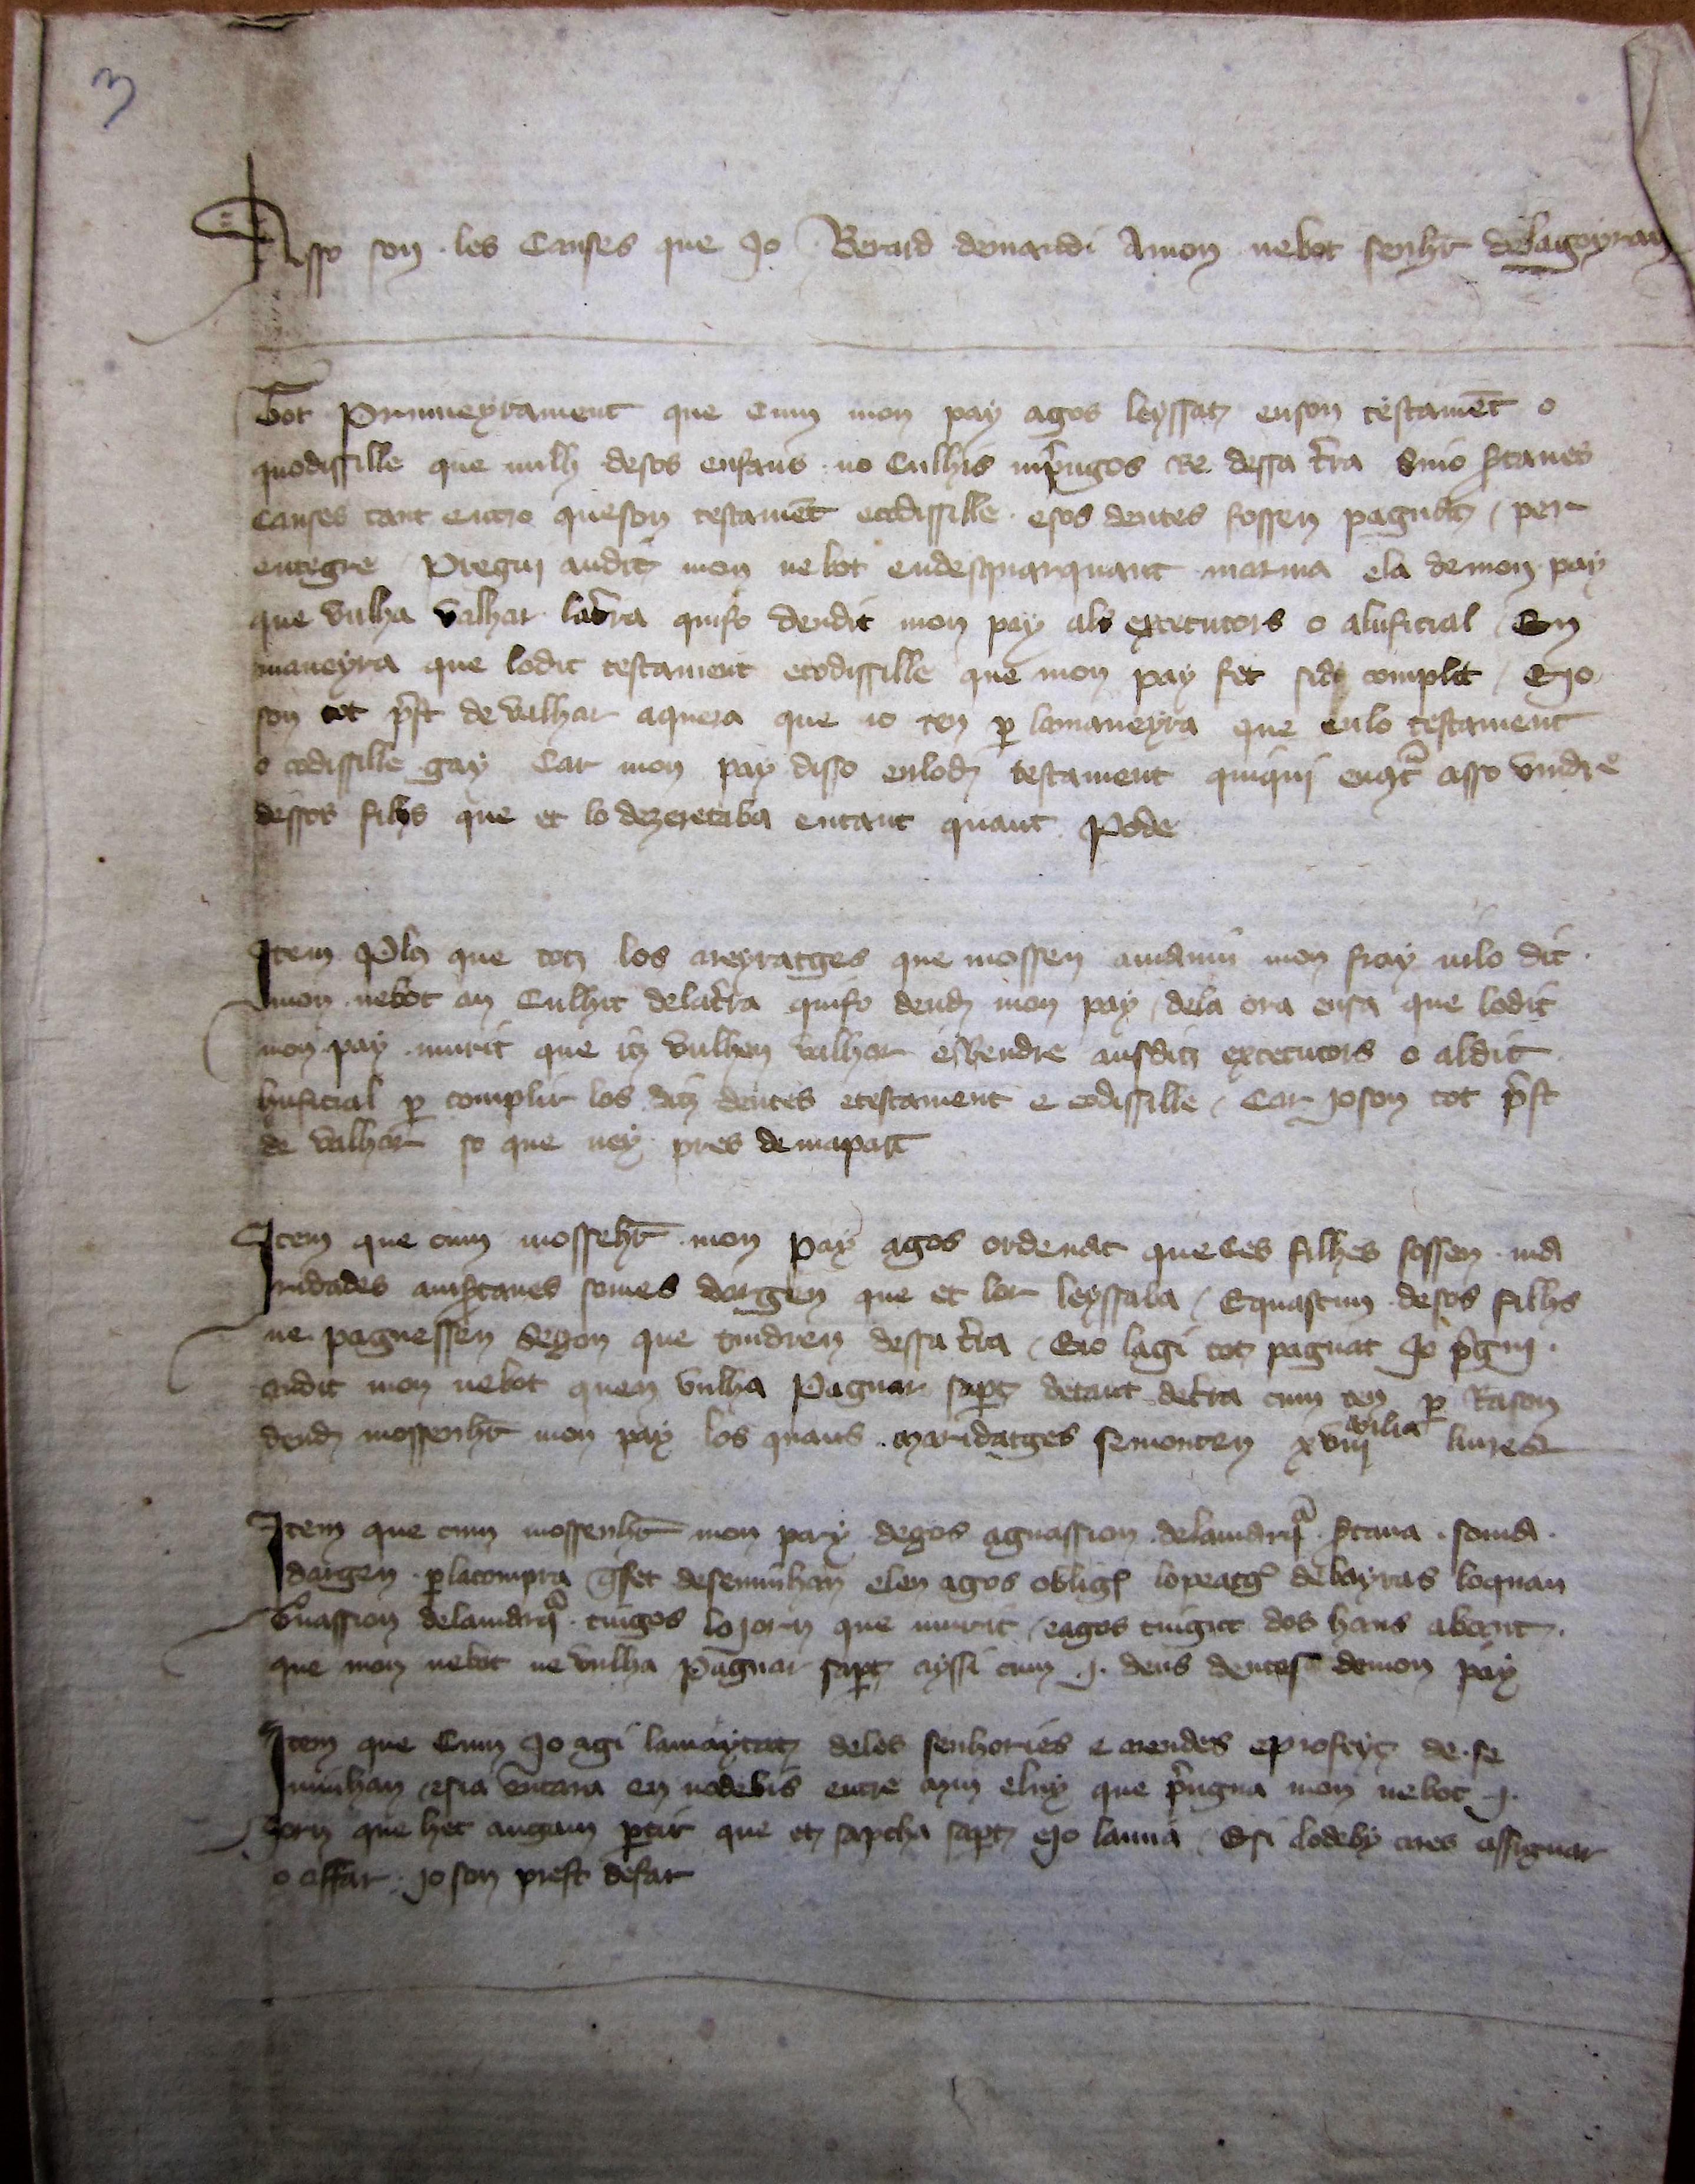 3
Asso son les Causes que Jo Berard demandi Amon nebot senhr delagoyran
Tot Prumeyrament que Cum mon pay agos leyssatz enson testamēt o
quodissille que nulh desos enfans no Culhis ni pngos Re dessa tra Sino stanes
Causes tant entro queson testamēt ecodissille esos deutes fossen paguatz per
entegre Pregui audit mon nebot endesquarquant marma ela demon pay
que vulha valhar latra quifo deudit mon pay als excecutors o alufficial En
maneyra que lodit testament ecodissille que mon pay fet sie complit Ejo
son tot pst de valhar aquera que jo ten p lamaneyra que enlo testament
o codissille gay Car mon pay disso enlodz testament quiqui enqtra asso vindre
dessos filhs que et lo dezeretaba entant quant Pode
Item Plus que totz los areyratges que mossen amaniu mon fray nilo dit
mon nebot an Culhit delatra quifo deudz mon pay dela ora ensa que lodit
mon pay murit que itz vulhen valhar e Rendre ausditz excecutors o aldit
huficial p complir los ditz deutes etestament e codissille Car Joson tot pst
de valhar so que ney pres demapart
Item que cum mossenhr mon pay agos ordenat queles filhes fossen ma
ridades ansertanes somes dargen que et lor leyssaba Equascun desos filhs
ne paguessen Segon que tindren dessa tra Ejo lagi totz paguat Jo pgui
audit mon nebot quem vulha Paguar sapt detant detra cum ten p Rason
deudz mossenhr mon pay los quaus maridatges semonten xviii milia liures
Item que cum mossenhr mon pay degos aguassion delamarqa stana soma
dargen placompra qfet deseminhan elen agos obligt lopeatge debayras loquau
Guassion delamarqa tingos lojorn que murit eagos tingut dos hans abant
que mon nebot ne vulha Paguar sapt ayssi cum j deus deutes demon pay
Item que Cum Jo agi lamaytatz deles senhories e arendes eprofeytz de se
minhan esia entara en nodebis entre min eluy que pngua mon nebot j
jorn que hec angam ptir que etz sapcha sapt ejo lamia Esi lodeby ares assignar
o affar jo son prest defar